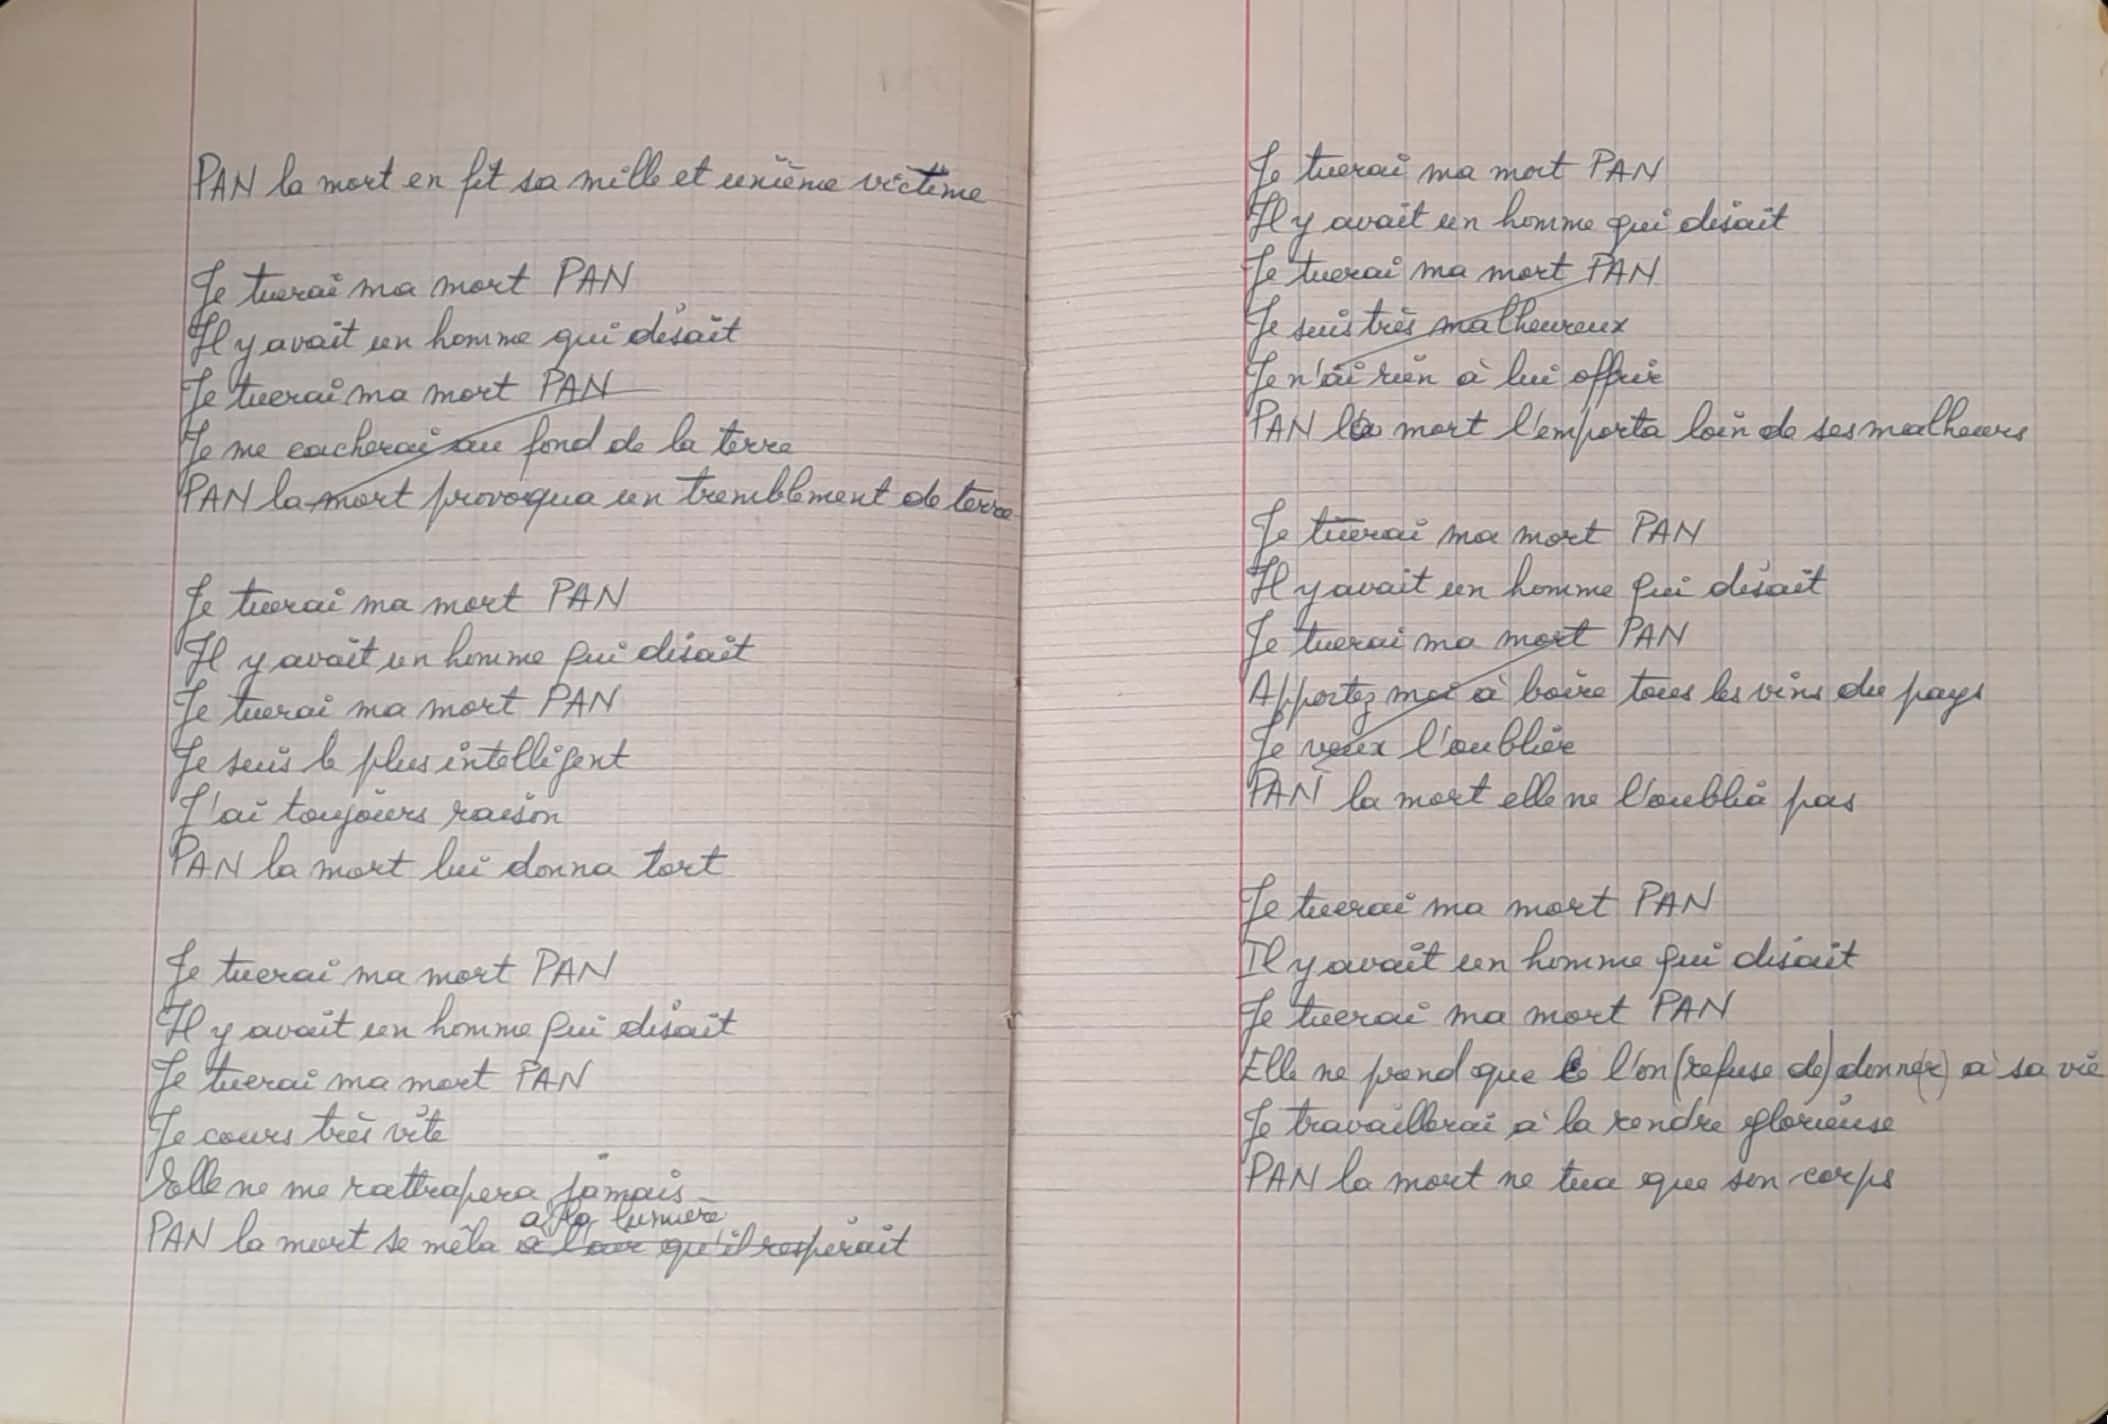 PAN la mort en fit sa mille et unième victime
Je tuerai ma mort PAN
Il y avait un homme qui disait
Je tuerai ma mort PAN
Je me cacherai au fond de la terre
PAN la mort provoqua un tremblement de terre
Je tuerai ma mort PAN
Il y avait un homme qui disait
Je tuerai ma mort PAN
Je suis le plus intelligent
J'ai toujours raison
PAN la mort lui donna tort
Je tuerai ma mort PAN
Il y avait un homme qui disait
Je tuerai ma mort PAN
Je cours très vite
Elle ne me rattrapera jamais
à la lumière
PAN la mort se mêla à l'air qu'il respirait
Je tuerai ma mort PAN
Il y avait un homme qui disait
Je tuerai ma mort PAN
Je suis très malheureux
Je n'ai rien à lui offrir
PAN la mort l'emporta loin de ses malheurs
Je tuerai ma mort PAN
Il y avait un homme qui disait
Je tuerai ma mort PAN
Apportez moi à boire tous les vins du pays
Je veux l'oublier
PAN la mort elle ne l'oublia pas
Je tuerai ma mort PAN
Il y avait un homme qui disait
Je tuerai ma mort PAN
Elle ne prend que l'on (refuse de) donne(r) à sa vie
Je travaillerai à la rendre glorieuse
PAN la mort ne tua que son corps